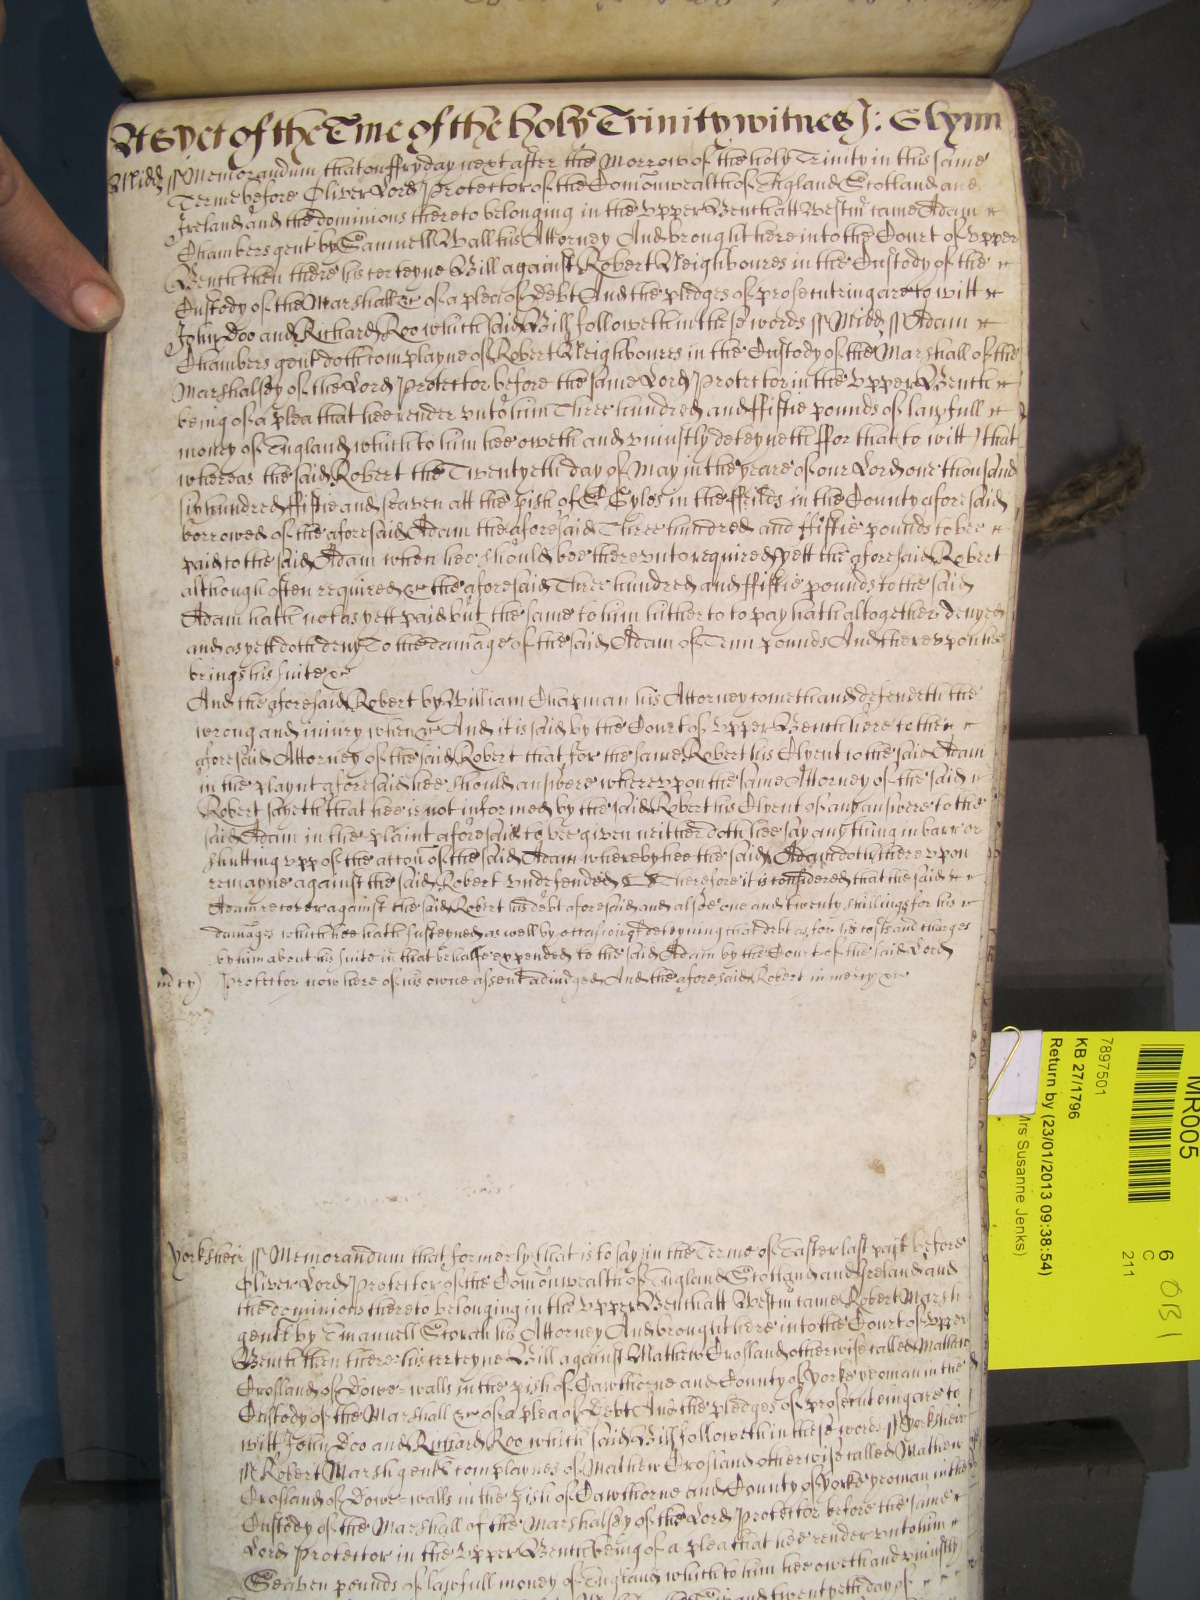 As yet of the Tme of the holy Trinity witnes J: Glynn
Midd ss Memorandum that on ffryday next after the Morrow of the holy Trinity in this same
Terme before Oliver Lord Protector of the Comonwealth of England Scotland and
Ireland and the dominions thereto belonging in the Vpper Bench att Westmr came Adam
Chambers gent by Samuell Wall his Attorney And brought here into the Court of Vpper
Bench then there his certeyne Bill against Robert Neighboures in the Custody of the
Custody of the Marshall &c of a plea of Debt And the pledges of prosecuting are to witt
John Doo and Richard Roo which said Bill followeth in these words ss Midd ss Adam
Chambers gent doth complayne of Robert Neighboures in the Custody of the Marshall of the
Marshalsey of the Lord Protector before the same Lord Protector in the Vpper Bench
being of a plea that hee render vnto him Three hundred and ffiftie pounds of lawfull
money of England which to him hee oweth and vniustly deteyneth ffor that to witt that
whereas the said Robert the Twentyeth day of May in the yeare of our Lord one thousand
six hundred ffiftie and seaven att the pish of St Gyles in the ffeilds in the County aforesaid
borrowed of the aforesaid Adam the aforesaid Three hundred and ffiftie pounds to bee
paid to the said Adam when hee should bee therevnto required yett the aforesaid Robert
although often required &c the aforesaid Three hundred and ffiftie pounds to the said
Adam hath not as yett paid but the same to him hitherto to pay hath altogether denyed
and as yett doth deny To the damage of the said Adam of Tenn pounds And therevpon hee
brings his suite &c
And the aforesaid Robert by William Chapman his Attorney cometh and defendeth the
wrong and iniury when &c And it is said by the Court of Vpper Bench here to the
aforesaid Attorney of the said Robert that for the same Robert his Clyent to the said Adam
in the playnt aforesaid hee should answere wherevpon the same Attorney of the said
Robert sayeth that hee is not informed by the said Robert his Clyent of any answere to the
said Adam in the plaint aforesaid to bee given neither doth hee say any thing in barr or
shutting vpp of the accon of the said Adam whereby hee the said Adam doth therevpon
remayne against the said Robert vndefended &c Therefore it is considered that the said
Adam recover against the said Robert his debt aforesaid and alsoe one and twenty shillings for his
damages which hee hath susteyned as well by occasion of deteyning that debt as for his costs and charges
by him about his suite in that behalfe expended to the said Adam by the Court of the said Lord
mcy) Protector now here of his owne assent adiudged And the aforesaid Robert in mercy &c
Yorksheir ss Memorandum that formerly that is to say in the Terme of Easter last past before
Oliver Lord Protector of the Comonwealth of England Scotland and Ireland and
the dominions thereto belonging in the Vpper Bench att Westmr came Robert Marsh
gent by Emanuell Storch his Attorney And brought here into the Court of Vpper
Bench then there his certeyne Bill against Mathew Crosland otherwise called Mathew
Crosland of Dowe-walls in the pish of Cawthorne and County of Yorke yeoman in the
Custody of the Marshall &c of a plea of Debt And the pledges of prosecuting are to
witt John Doo and Richard Roo which said Bill followeth in these words ss Yorksheir
ss Robert Marsh gent complaynes of Mathew Crosland otherwise called Mathew
Crosland of Dowe-walls in the pish of Cawthorne and County of Yorke yeoman in the
Custody of the Marshall of the Marshalsey of the Lord Protector before the same
Lord Protector in the Vpper Bench being of a plea that hee render vnto him
Seaven pounds of lawfull money of England which to him hee oweth and vniustly
and twentyeth day of
MR005
7897501
KB 27/1796
Return by (23/01/2013 09:38:54)
Mrs Susanne Jenks)
6
C
211